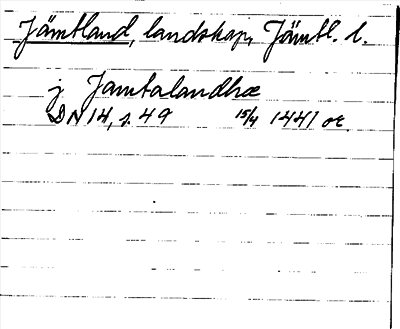 Jämtland, landskap, Jämtl. l.
j Jamtalandhæ
DN 14, s. 49 15/4 1441 or.